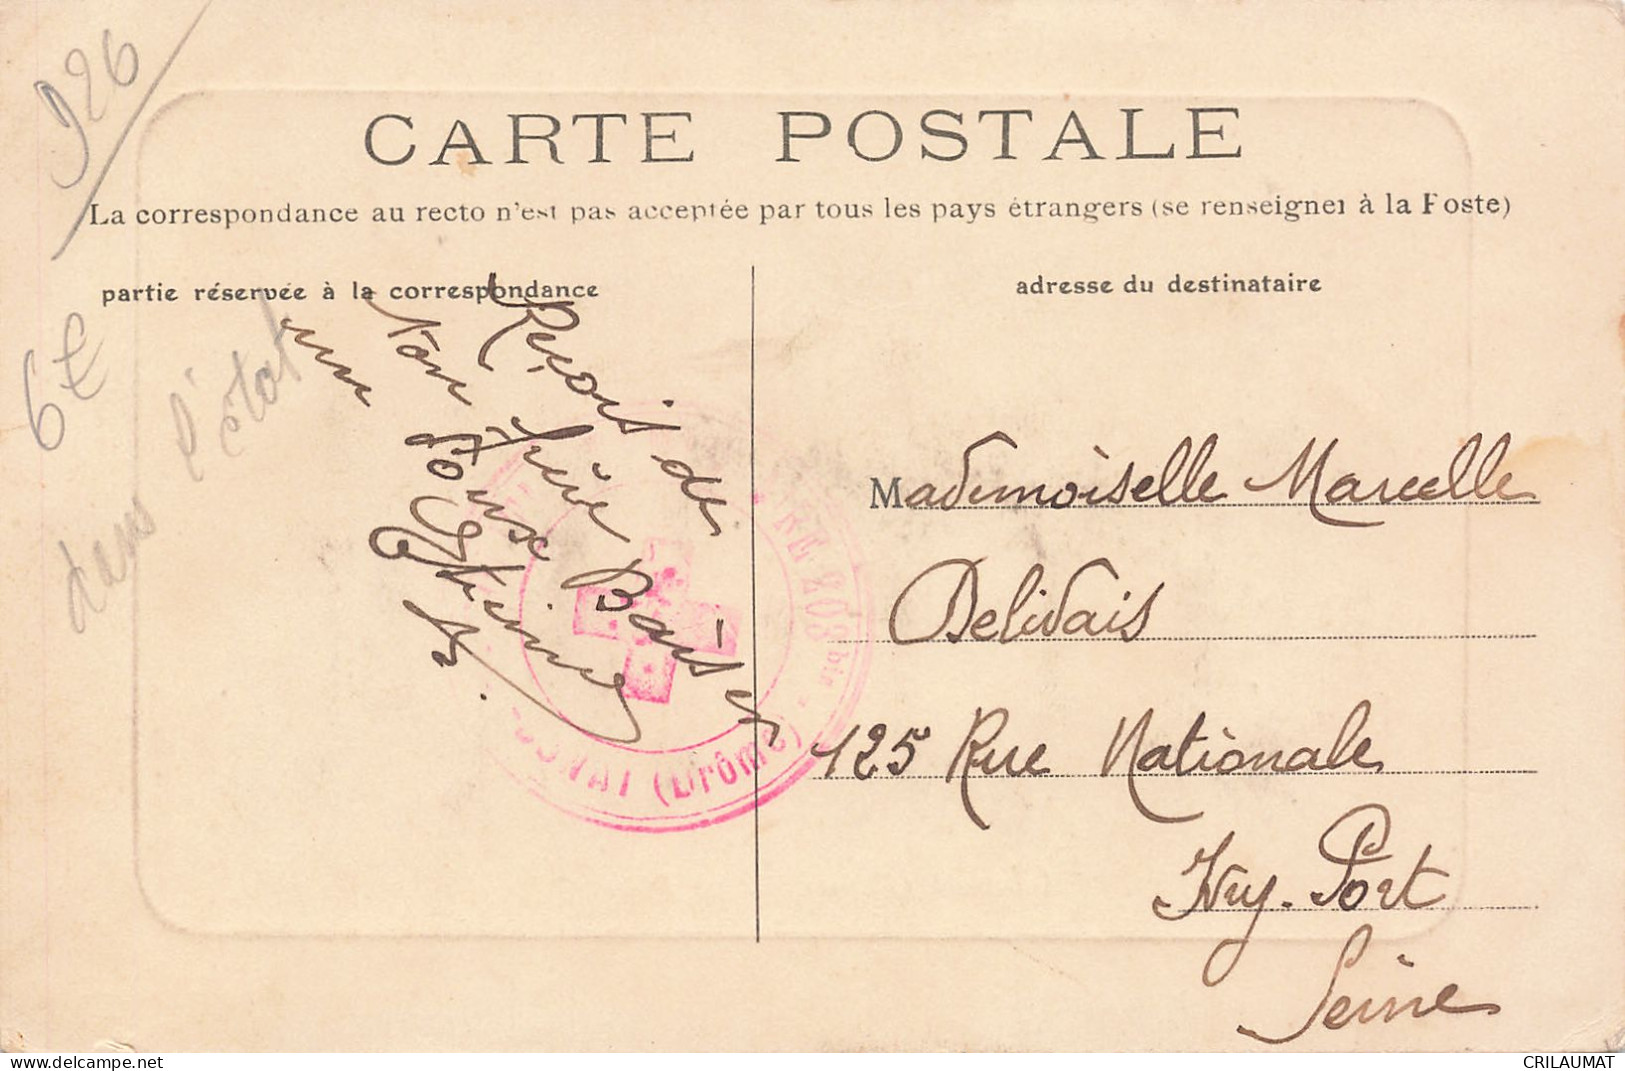 926
CARTE POSTALE
La correspondance au recto n'est pas acceptée par tous les pays étrangers (se renseigner à la Poste)
partie réservée à la correspondance
adresse du destinataire
6€
dans l'état
Reçois de
ton frère
un doux Baiser
Etienne
Mademoiselle Marcelle
Delivais
125 Rue Nationale
Ivry-Port
Seine
208 bis
(Drôme)
delcampe.net
CRILAUMAT